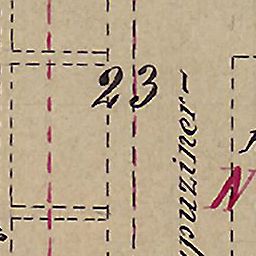 23
puziner-
N